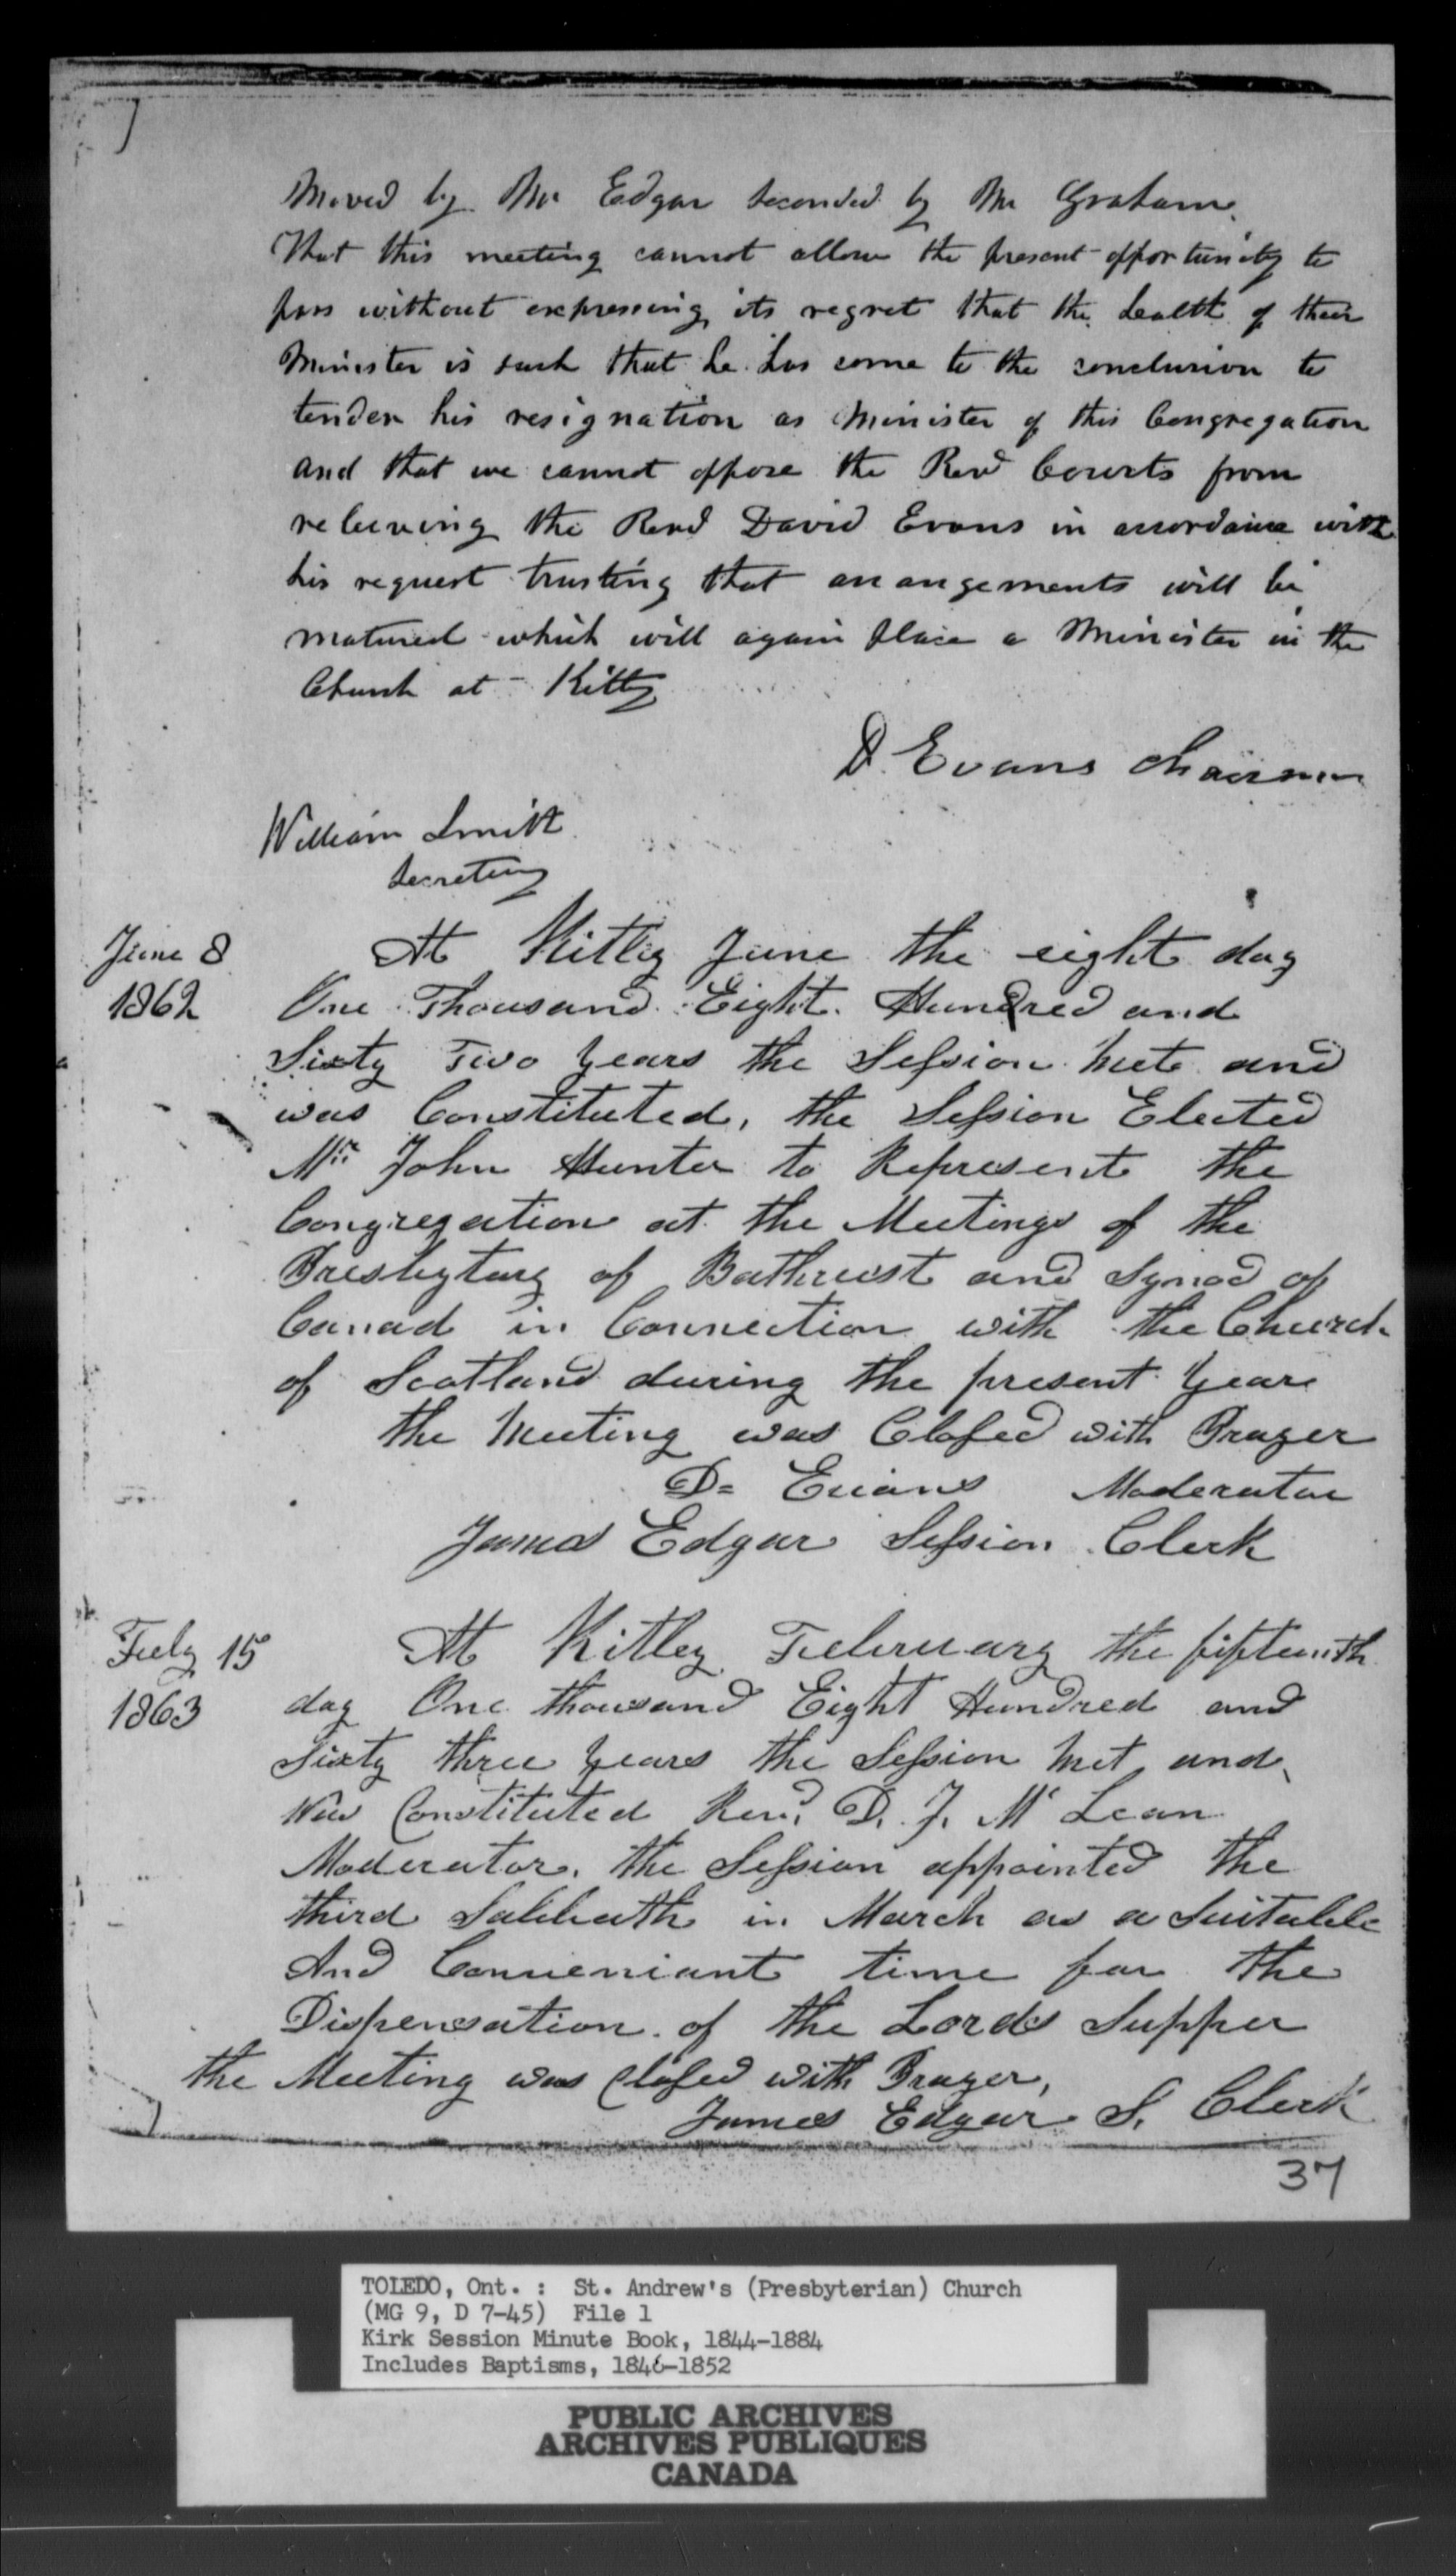 Moved by Mr Edgar Seconded by Mr Graham.
That this meeting cannot allow the present opportunity to
pass without expressing its regret that the health of their
Minister is such that he has come to the conclusion to
tender his resignation as Minister of this Congregation
and that we cannot oppose the Revd Courts from
releiving the Revd David Evans in accordance with
his request trusting that arrangements will be
matured which will again place a Minister in the
Church at Kitley
D. Evans Chairman
William Smith
Secretary
June 8
1862
At Kitley June the eight day
One Thousand Eight Hundred and
Sixty Two Years the Session Mete and
was Constituted, the Session Elected
Mr. John Hunter to Represent the
Congregation at the Meetings of the
Presbytary of Bathurst and Synod of
Canad in Connection with the Church
of Scotland during the present Year
the Meeting was Closed with Prayer
D= Evans Moderator
James Edgar Session Clerk
Feby 15
1863
At Kitley February the fifteenth
day One thousand Eight Hundred and
Sixty three Years the Session Met and
Was Constituted Revd. D. J. Mc Lean
Moderator. the Session appointed the
third Sabbath in March as a Suitable
And Conveniant time for the
Dispensation of the Lords Supper
the Meeting was Closed with Prayer,
James Edgar S. Clerk
37
TOLEDO, Ont. : St. Andrew's (Presbyterian) Church
(MG 9, D 7-45) File 1
Kirk Session Minute Book, 1844-1884
Includes Baptisms, 1846-1852
PUBLIC ARCHIVES
ARCHIVES PUBLIQUES
CANADA